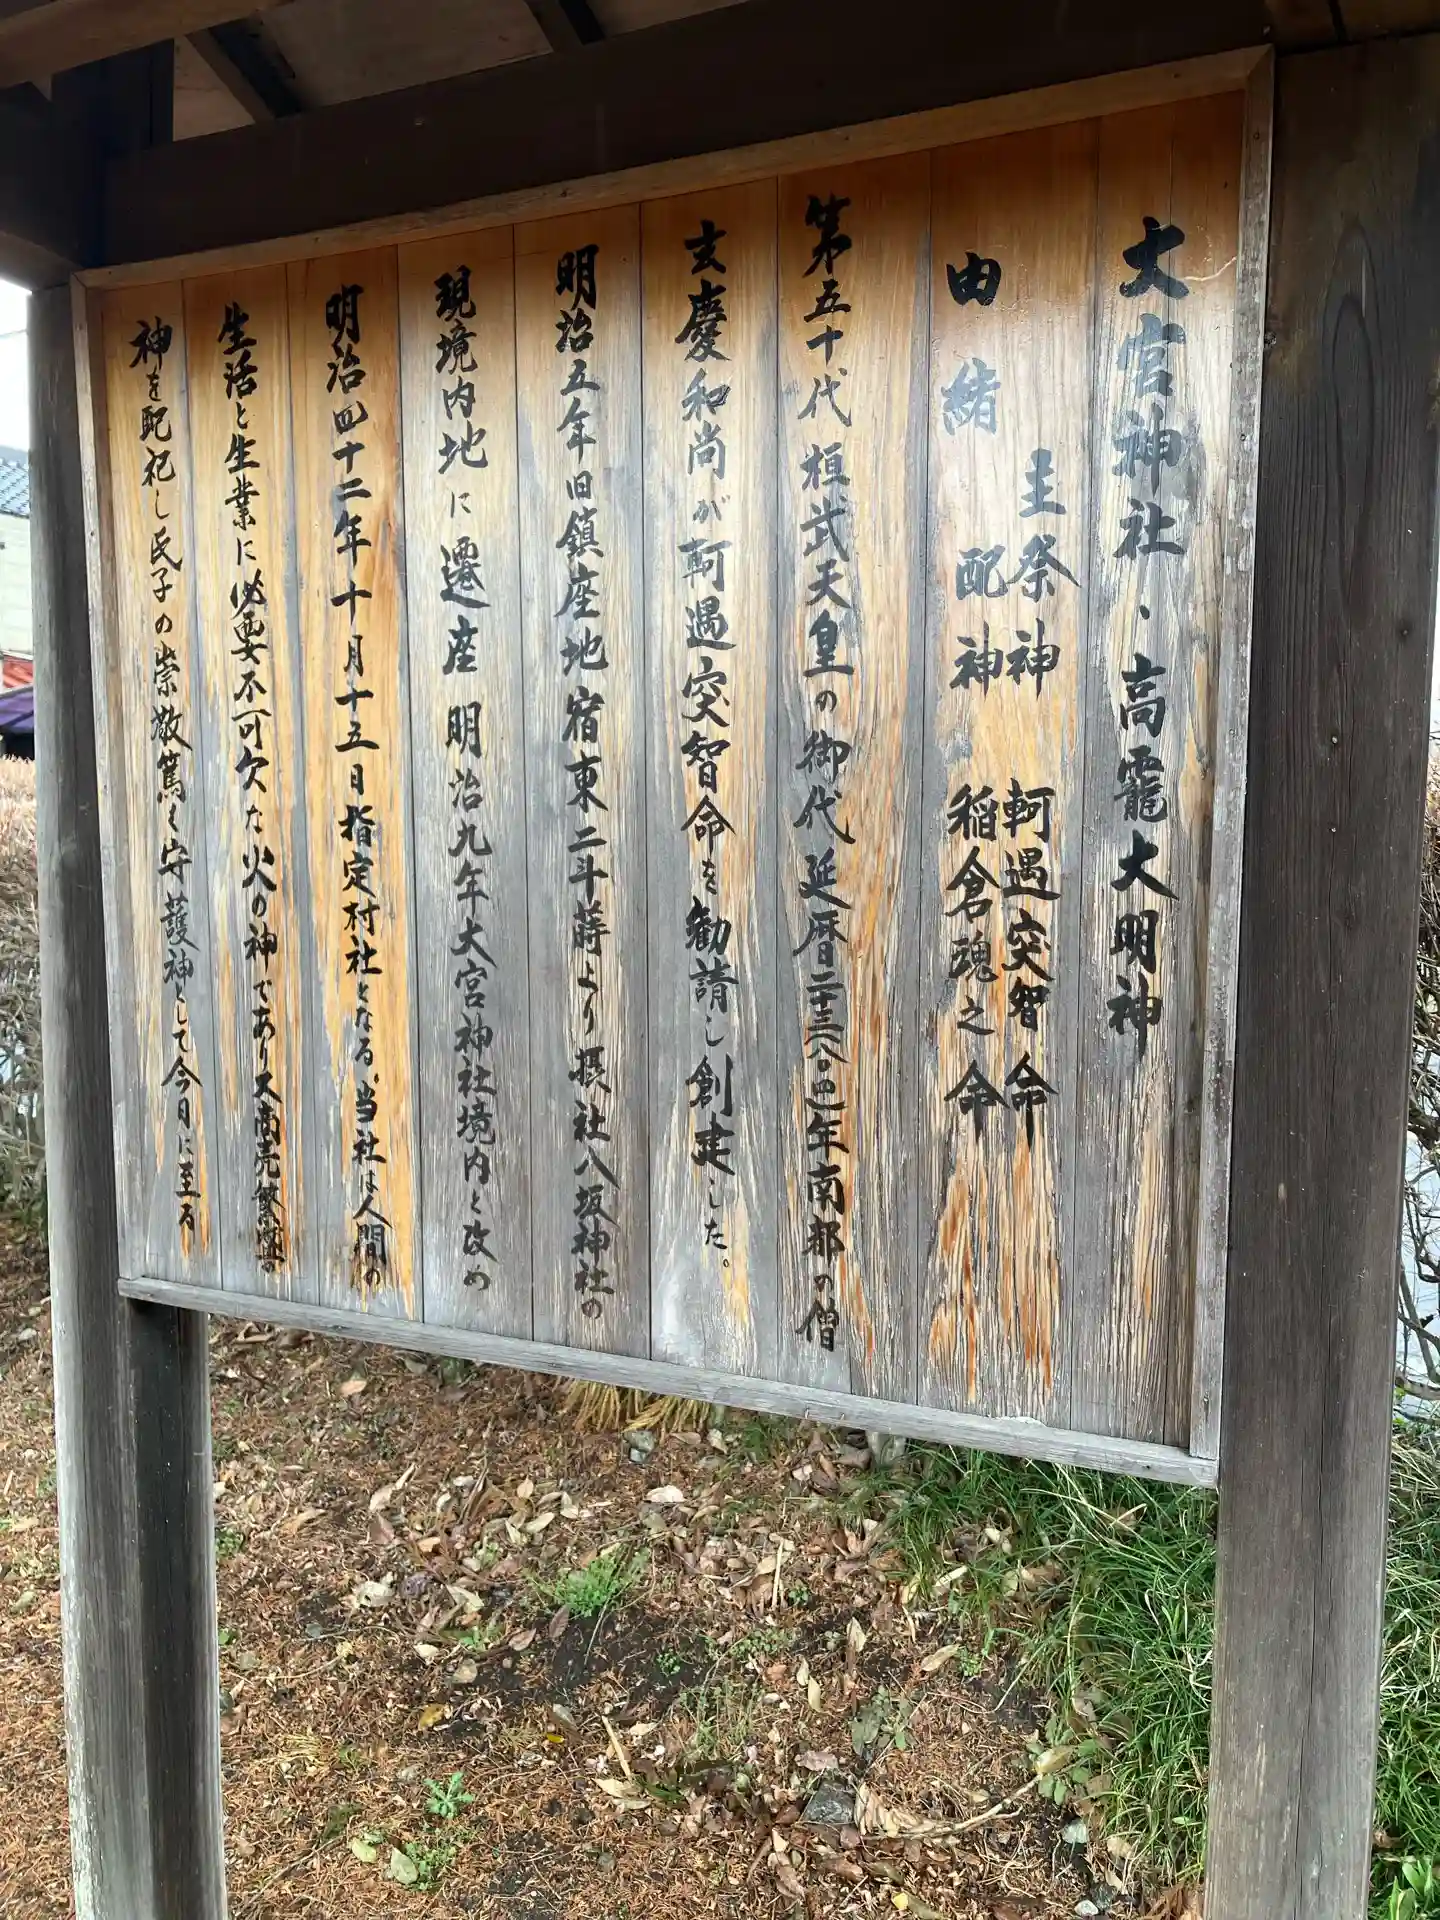 大宮神社、高龗大明神
主祭神 軻遇突智命
由緒 配神 稲倉魂之命
第五十代桓武天皇の御代延暦二十三(八〇四)年南都の僧
玄慶和尚が軻遇突智命を勧請し創建した。
明治五年旧鎮座地宿東二斗蒔より摂社八坂神社の
現境内地に遷座 明治九年大宮神社境内と改め
明治四十二年十月十五日指定村社となる、当社は人間の
生活と生業に必要不可欠な火の神であり又商売繁盛の
神を配祀し氏子の崇敬篤く守護神として今日に至る